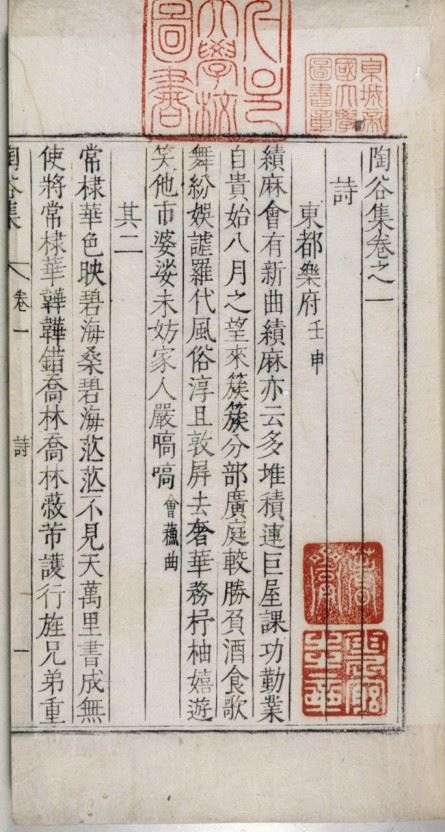 京城帝
國大學
圖書章
서울
大學校
圖書
陶谷集卷之一
詩
東都樂府壬申
績麻會有新曲績麻亦云多堆積連巨屋課功勤業
自貴始八月之望來簇簇分部廣庭較勝負酒食歌
舞紛娛謔羅代風俗淳且敦屏去奢華務杼柚嬉遊
笑他市婆娑未妨家人嚴嗃嗃會蘓曲
其二
常棣華色映碧海桑碧海茫茫不見天萬里書成無
使將常棣華韡韡錯喬林喬林蔽芾護行旌兄弟重
陶谷集 卷一 詩 一